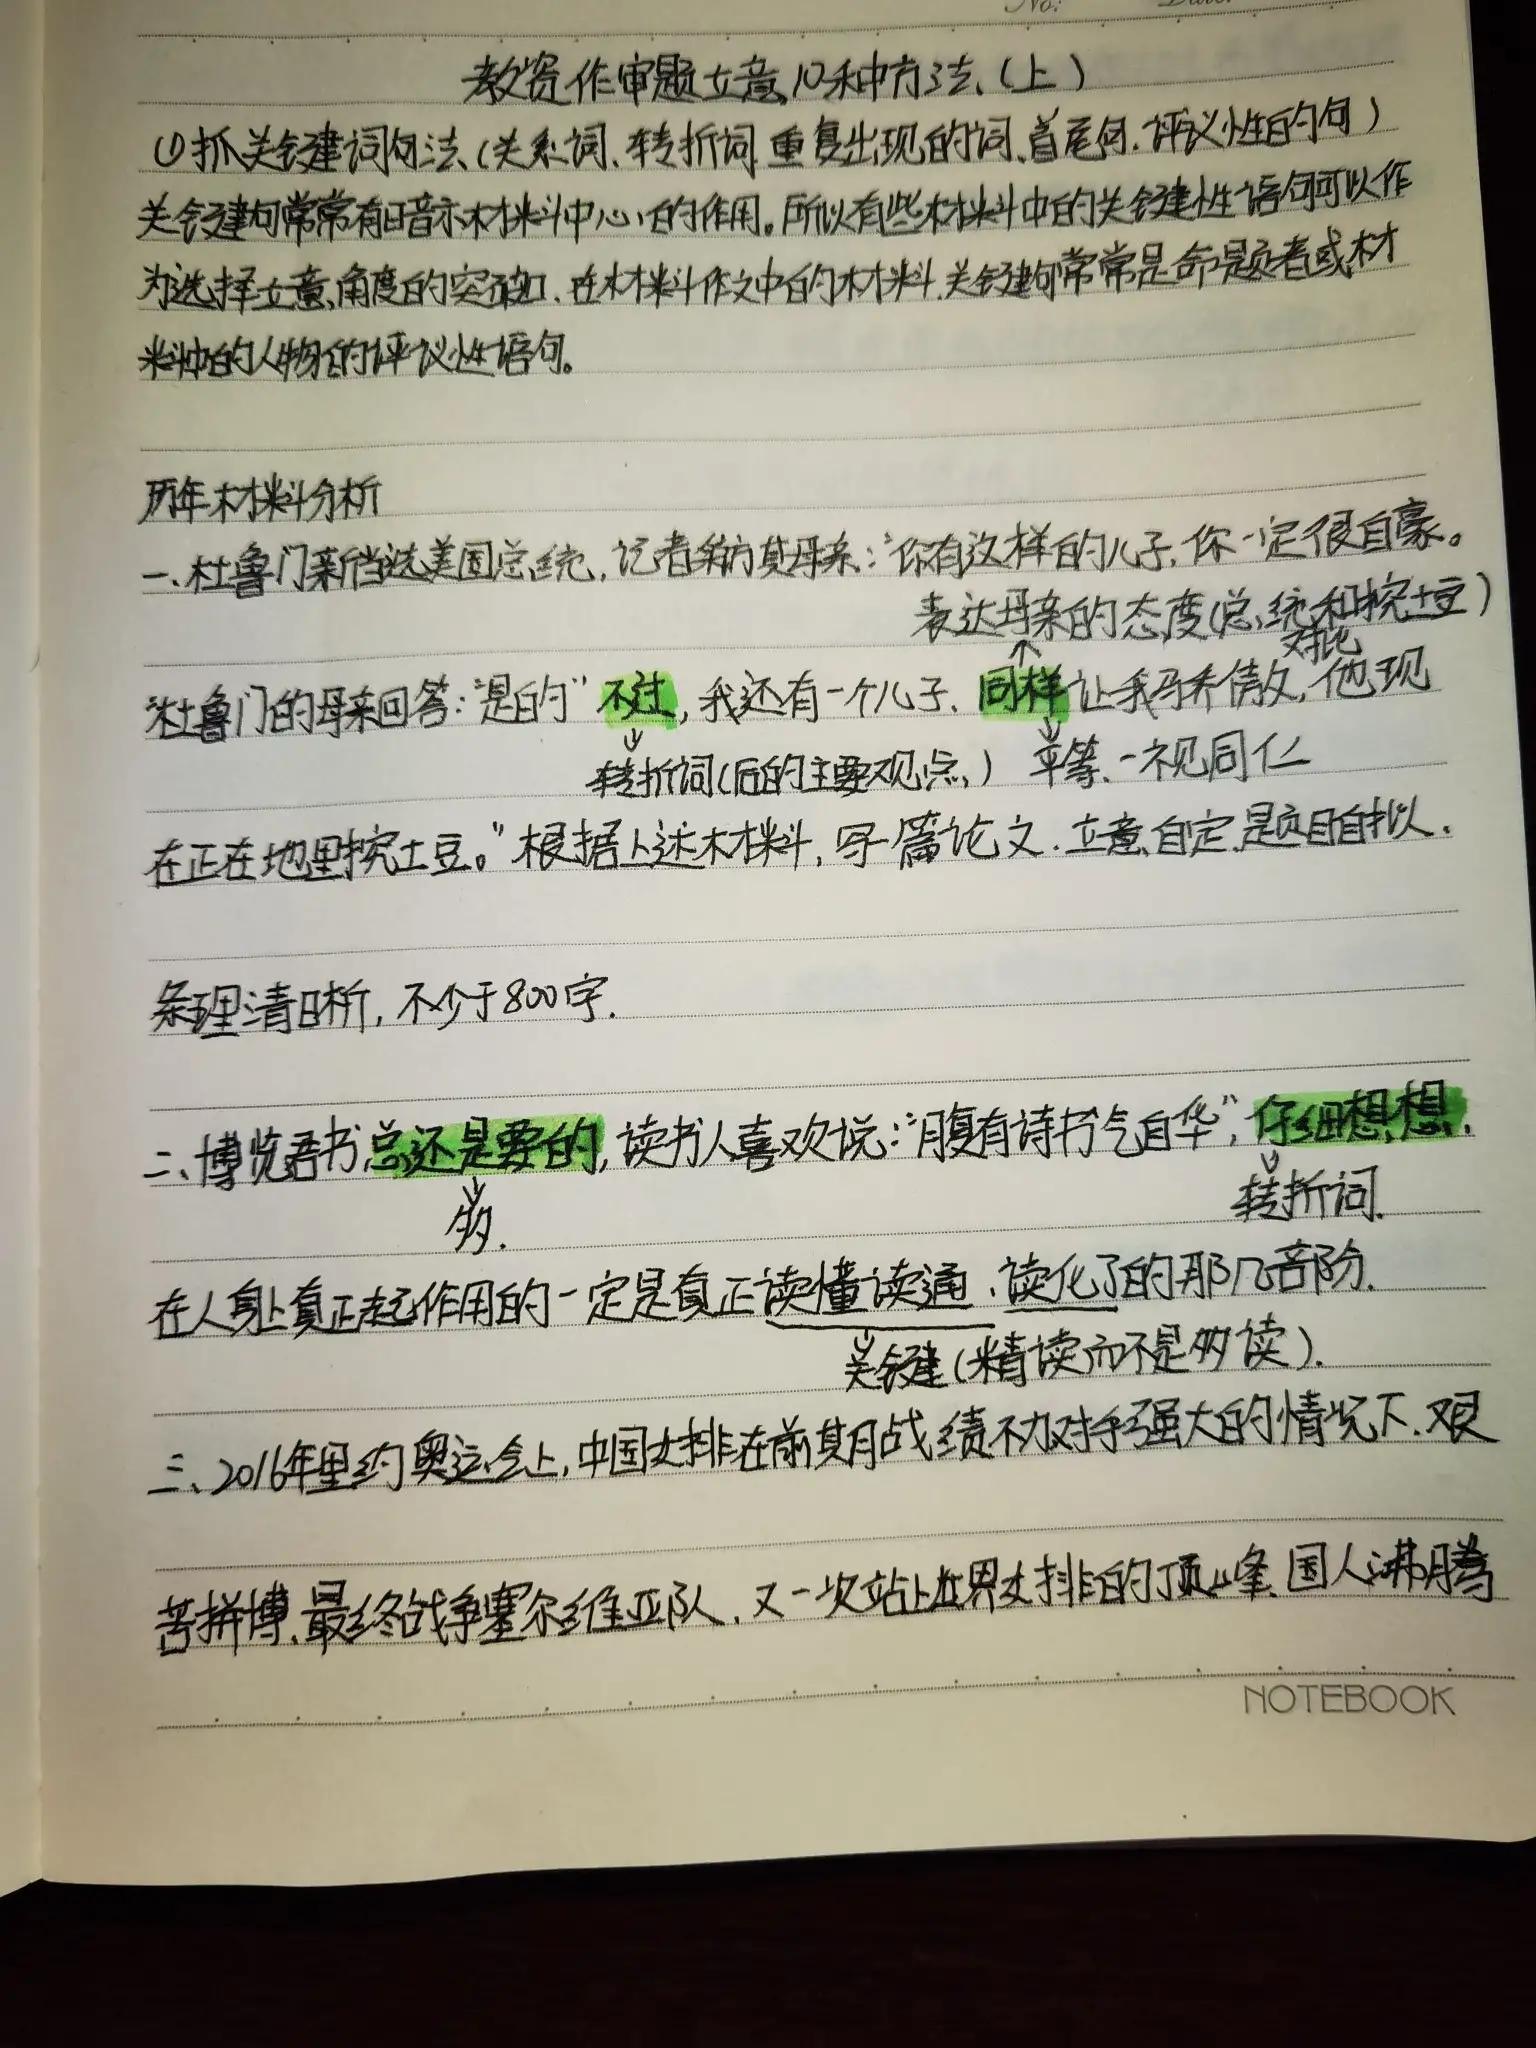 No: Date:
教资作审题立意10种方法(上)
(1)抓关键词句法(关系词、转折词、重复出现的词、首尾句、评议性的句)
关键句常常有暗示材料中心的作用。所以有些材料中的关键性语句可以作
为选择立意角度的突破口、在材料作文中的材料、关键句常常是命题者或材
料中的人物的评议性语句。
历年材料分析
一、杜鲁门新当选美国总统,记者采访其母亲:“你有这样的儿子,你一定很自豪。
表达母亲的态度(总统和挖土豆)
对比
“杜鲁门的母亲回答:“是的”不过,我还有一个儿子、同样让我骄傲,他现
转折词(后的主要观点) 平等、一视同仁
在正在地里挖土豆。”根据上述材料,写一篇论文.立意自定,题目自拟.
条理清晰,不少于800字.
二、博览吾书总还是要的,读书人喜欢说:“腹有诗书气自华”,仔细想想,
多. 转折词.
在人身上真正起作用的一定是真正读懂读通、读化了的那几部份.
关键(精读而不是多读).
三、2016年里约奥运会上,中国女排在前期战绩不力对手强大的情况下.艰
苦拼博、最终战争塞尔维亚队、又一次站上世界女排的顶峰、国人沸腾
NOTEBOOK